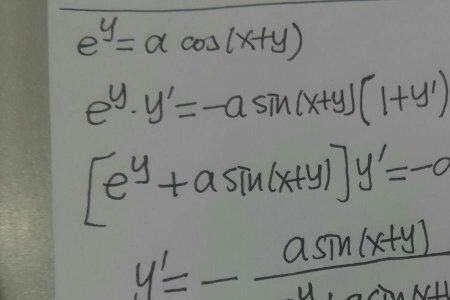 e^y = a cos(x+y)
e^y · y' = -a sin(x+y)(1+y')
[e^y + a sin(x+y)] y' = -a
y' = - a sin(x+y)
e^y + a sin(x+y)